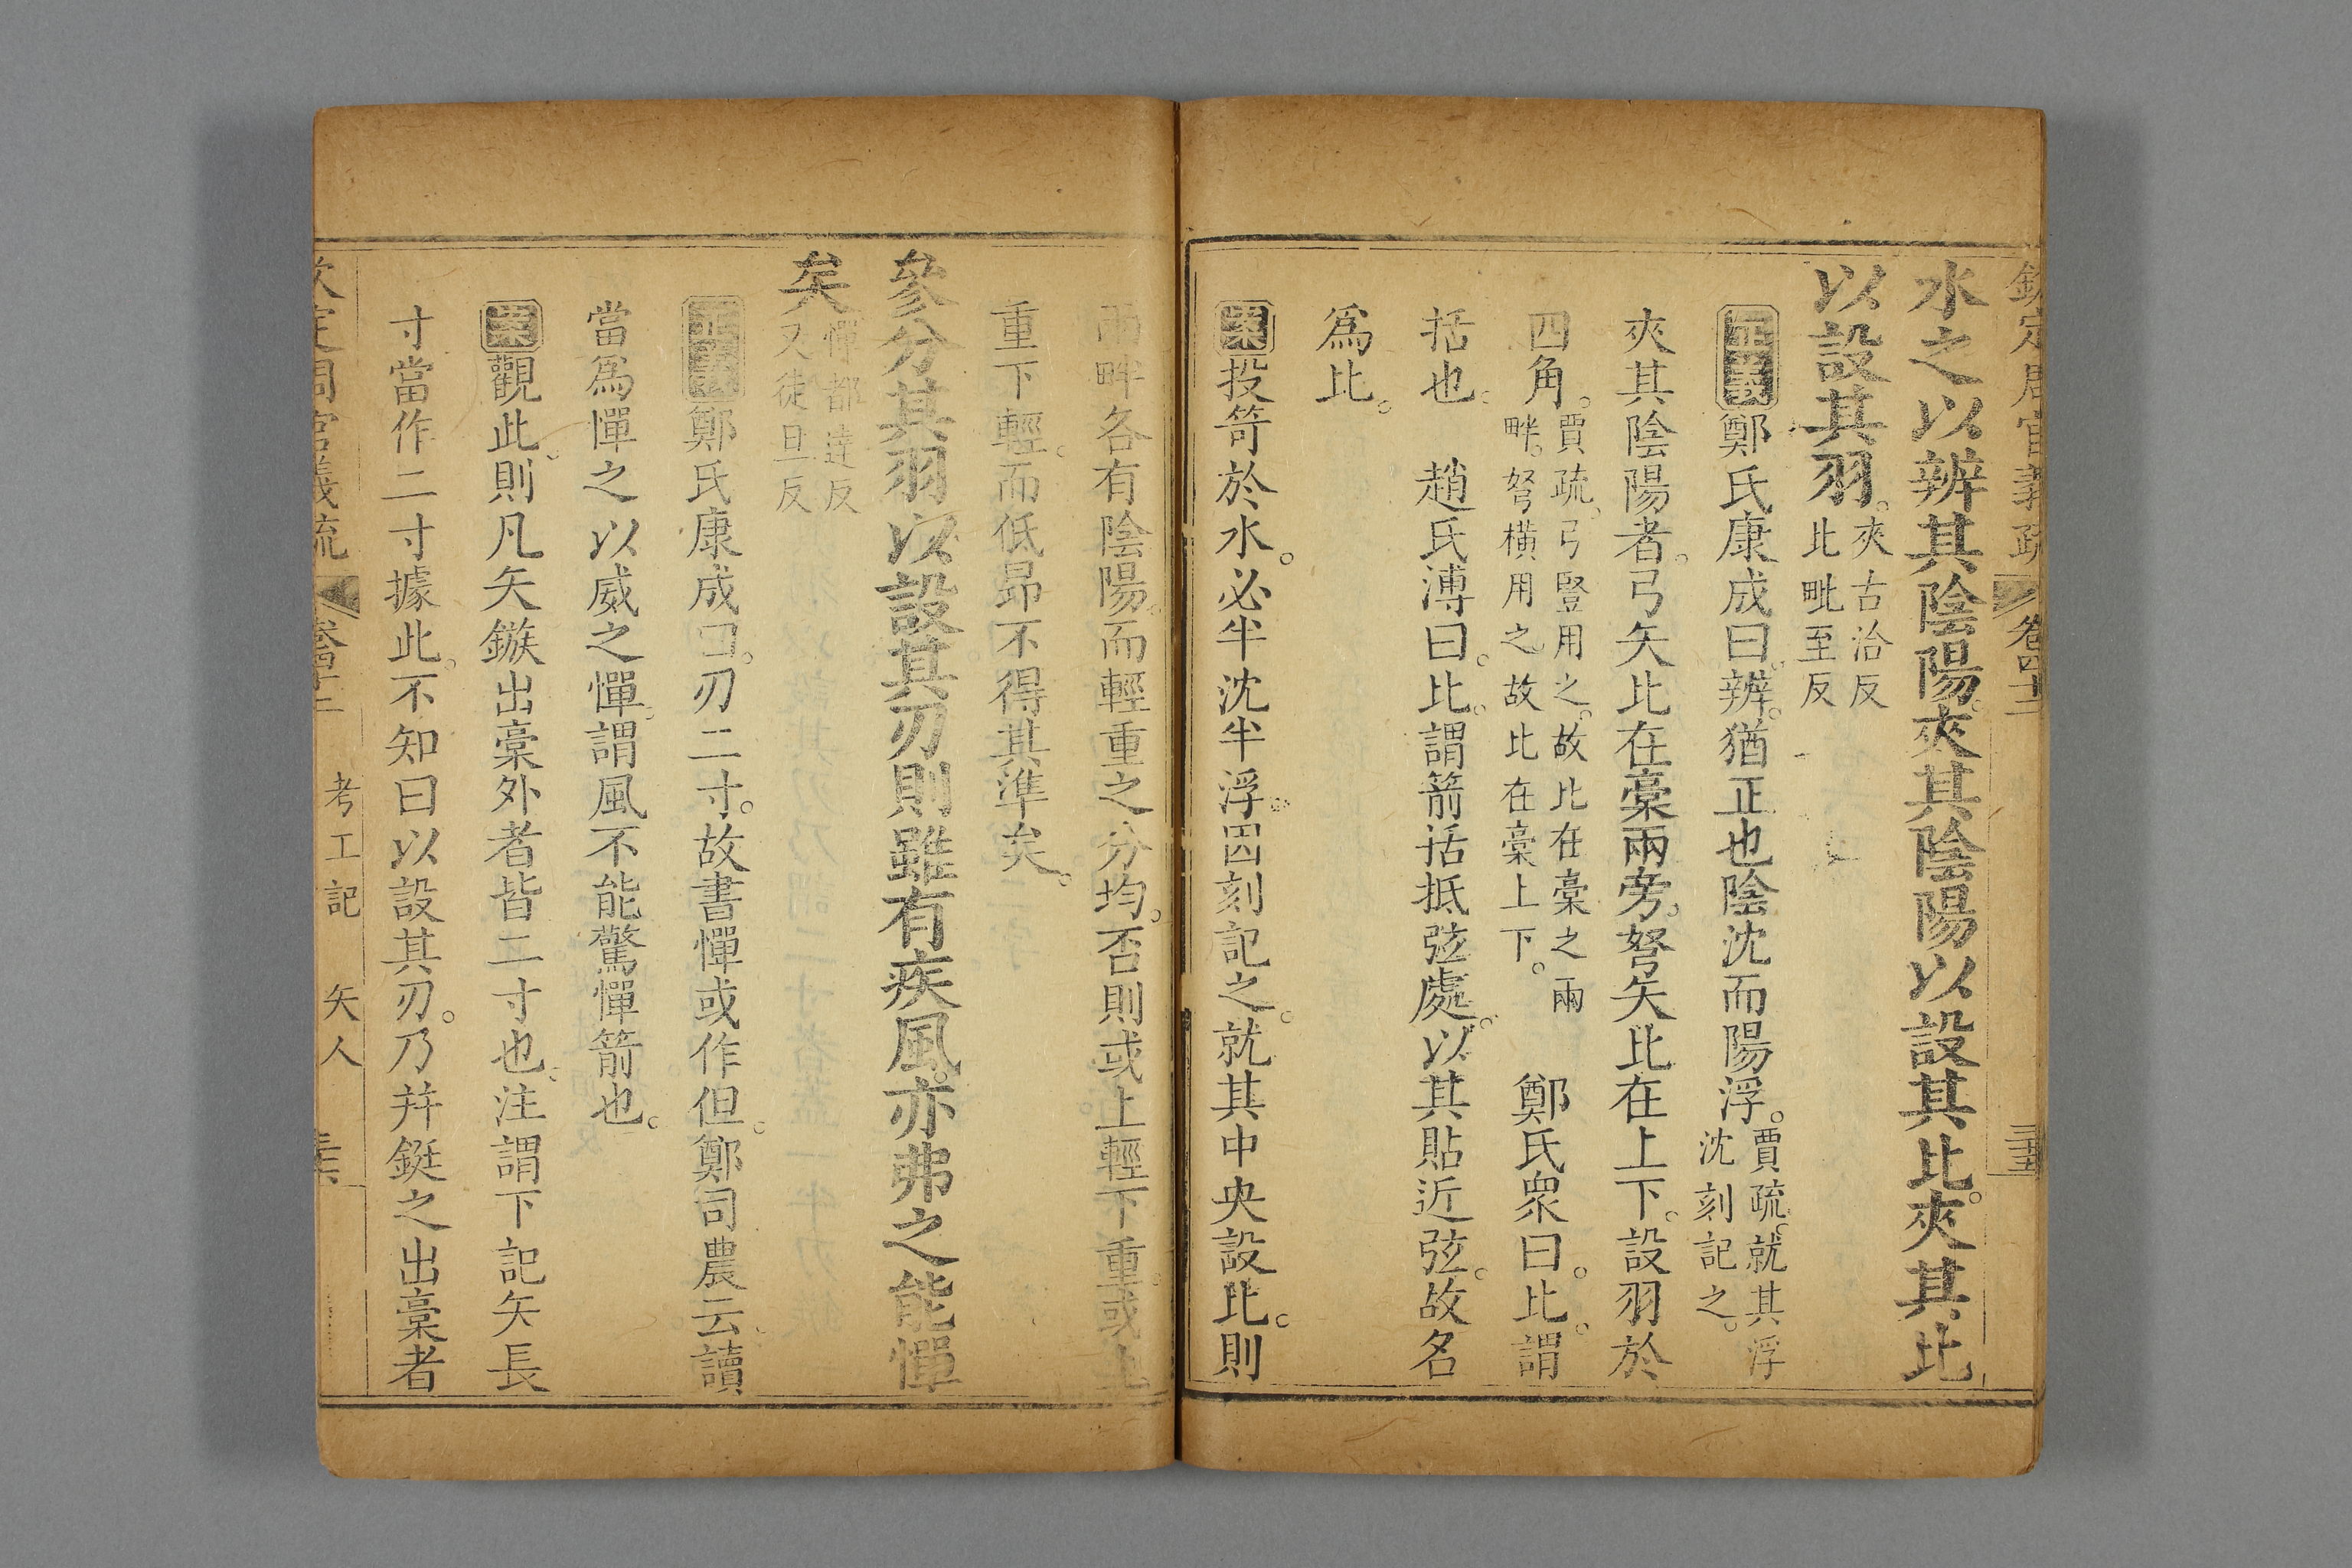 欽定周官義疏 卷四十二 三十五
水之以辨其陰陽夾其陰陽以設其比夾其比
以設其羽夾古洽反比毗至反
正義鄭氏康成曰辨猶正也陰沈而陽浮賈疏就其浮沈刻記之
夾其陰陽者弓矢比在槀兩旁弩矢比在上下設羽於
四角賈疏弓豎用之故比在槀之兩畔弩橫用之故比在槀上下 鄭氏衆曰比謂
括也 趙氏溥曰比謂箭括抵弦處以其貼近弦故名
爲比
案投笴於水必半沈半浮四刻記之就其中央設比則
兩畔各有陰陽而輕重之分均否則或上輕下重或上
重下輕而低昻不得其準矣
參分其羽以設其刃則雖有疾風亦弗之能憚
矣憚都達反又徒旦反
正義鄭氏康成曰刃二寸故書憚或作但鄭司農云讀
當爲憚之以威之憚謂風不能驚憚箭也
案觀此則凡矢鏃出槀外者皆二寸也注謂下記矢長
寸當作二寸據此不知曰以設其刃乃并鋌之出槀者
欽定周官義疏 卷四十二 考工記 矢人